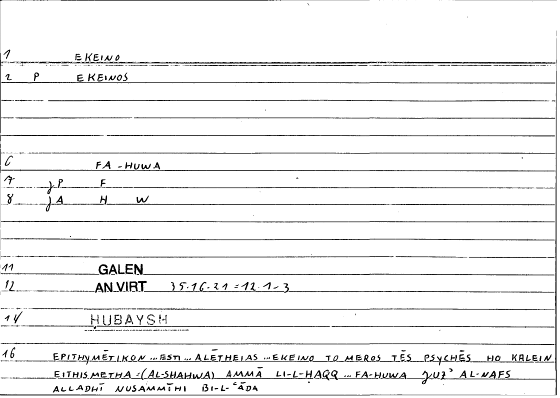 1 EKEINO
2 P EKEINOS
6 FA-HUWA
7 JP F
8 JA H W
11 GALEN
12 AN.VIRT 35.16-21 = 12.1-3
14 HUBAYSH
16 EPITHYMĒTIKON ... ESTI ... ALĒTHEIAS ... EKEINO TO MEROS TĒS PSYCHĒS HO KALEIN
EITHISMETHA - (AL-SHAHWA) AMMĀ LI-L-ḤAQQ ... FA-HUWA JUZʾ AL-NAFS
ALLADHĪ NUSAMMĪHI BI-L-ʿĀDA